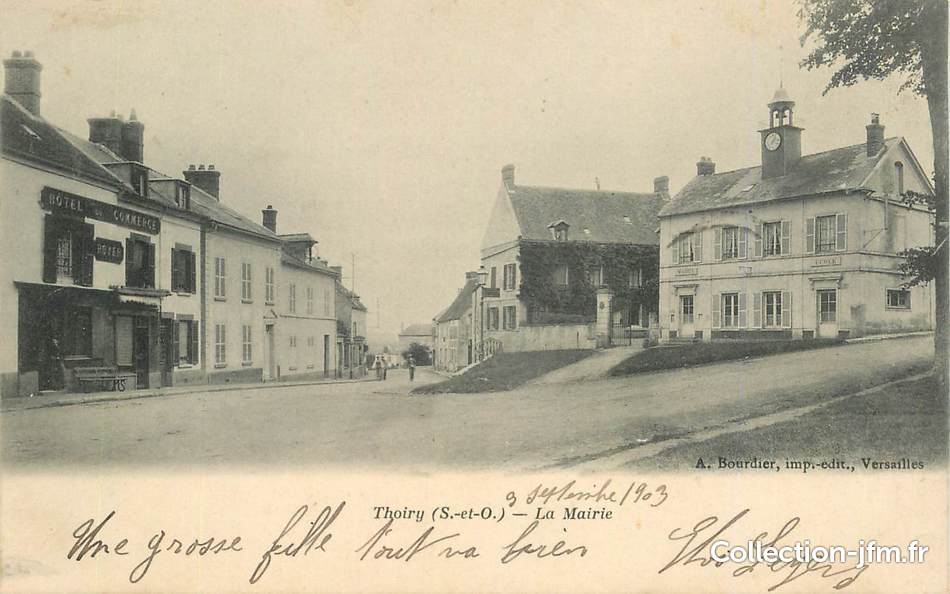 HÔTEL DU COMMERCE
ROYER
MAIRIE
ÉCOLE
A. Bourdier, imp.-edit., Versailles
Thoiry (S.-et-O.) — La Mairie
3 septembre 1903
Une grosse fille tout va bien
Collection-jfm.fr